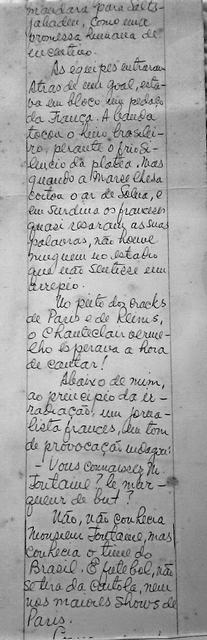 mandara para satis-
fazer, como uma
promessa humana de
As equipes entraram.
Atras de um goal, esta-
va em bloco um pedaço
da França. A banda
tocou o hino brasilei-
ro, perante o frio Si-
lencio da platea. Mas
quando a Marselhesa
cortou o ar de Solna, e
em surdina os franceses
quasi resaram as suas
palavras, não houve
ninguem no estadio
que não sentisse um
arrepio.
No peito dos cracks
de Paris e de Reims,
o Chanteclair verme-
lho esperava a hora
de cantar!
Abaixo de mim,
ao principio da ir-
radiação, um jorna-
lista frances, em tom
de provocação indagou:
- Vous connaissez M.
Fontaine? le mar-
queur de but?
Não, não conhecia
Monsieur Fontaine, mas
conhecia o time do
Brasil. E futebol, não
se tira da cartola, nem
nos maiores shows de
Paris.